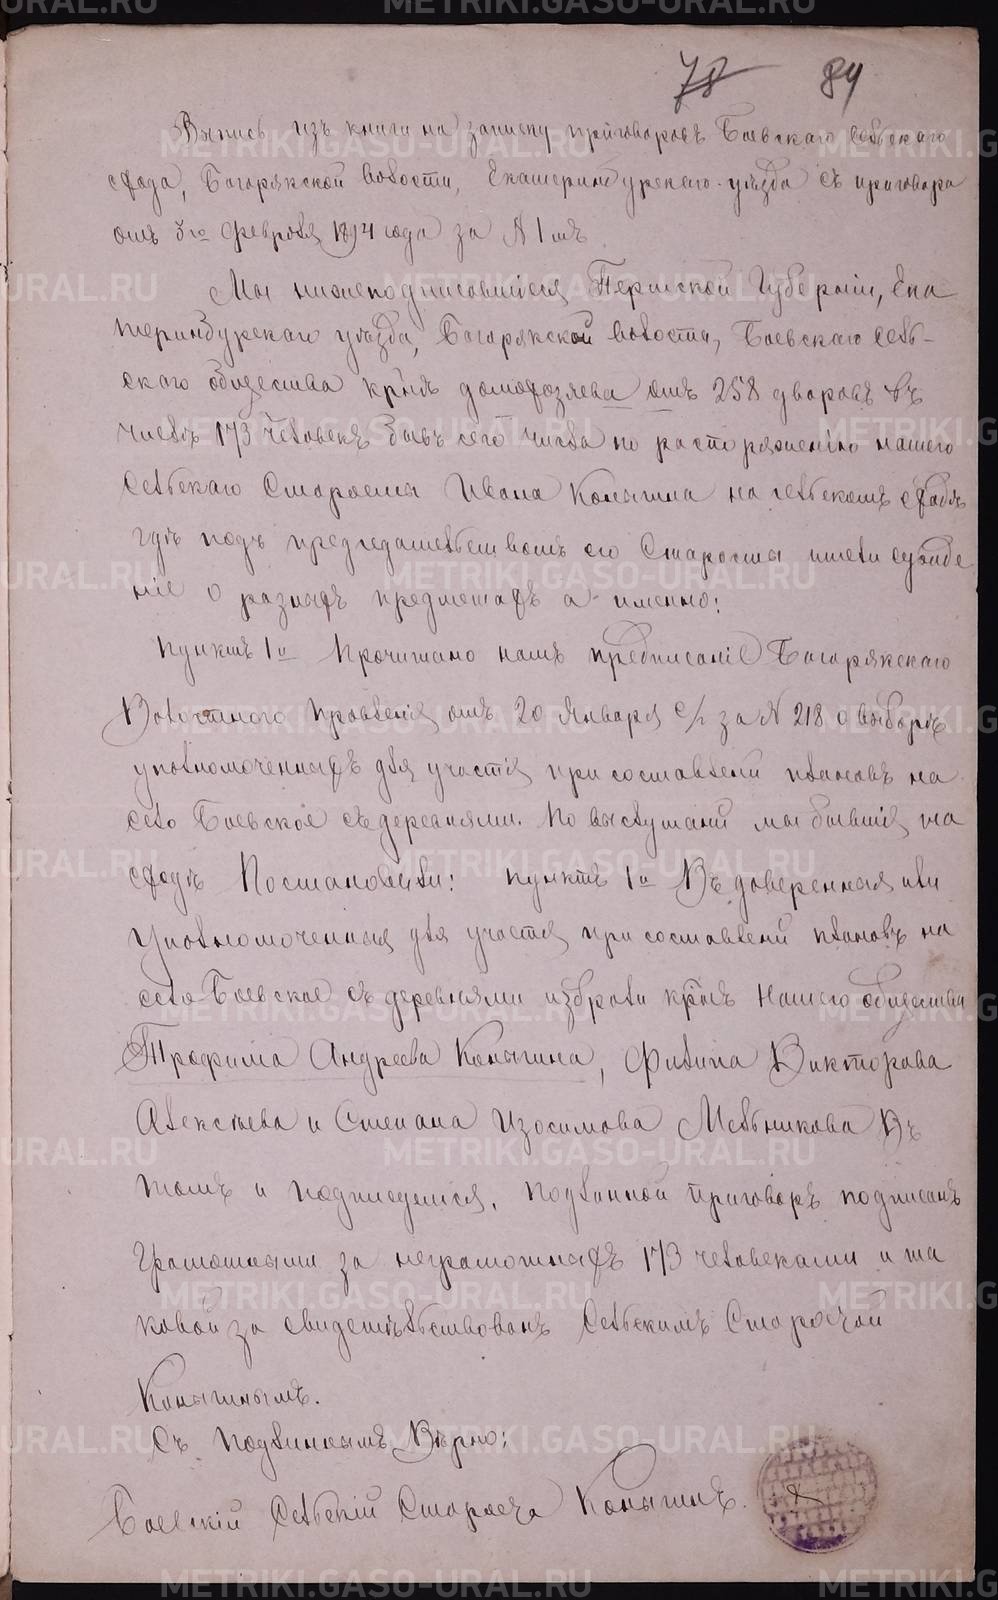 78 84
Выпись изъ книги на записку приговоровъ Боевскаго Сельскаго
схода, Багарякской волости, Екатеринбурскаго уѣзда съ приговора
отъ 8го Февроля 1894 года за № 1мъ
Мы нижеподписовшіися Пермской Губерніи, Ека
теринбурскаго уѣзда, Багарякской волости, Боевскаго Сель-
скаго общества крнъ домохозяева отъ 258 дворовъ въ
числѣ 173 человекъ бывъ сего числа по расторяженію нашего
Сельскаго Старосты Ивана Коныгина на сельскомъ сходѣ
гдѣ подъ председательствомъ его Старосты имели сужде
ніе о разныхъ предметахъ а именно:
Пунктъ 1й Прочитано намъ предписаніе Багарякскаго
Волостного Провленія отъ 20 Января с/г за № 218 о выборѣ
уполномоченныхъ для участія при составлени плановъ на
село Боевское съ деревнями. По выслушани мы бывшія на
сходѣ Постановили: пунктъ 1й Въ доверенныя или
Уполномоченныя для участія при составлени плановъ на
село Боевское съ деревнями избрали крнъ Нашего общества
Трофима Андреева Коныгина, Филипа Викторова
Алексѣева и Степана Изосимова Мельникова Въ
томъ и подписуемся. Подлинной приговоръ подписанъ
Грамотными за неграмотныхъ 173 человеками и та
ковой за свидетѣльствованъ Сельскимъ Старостой
Коныгинымъ.
Съ Подлиннымъ Вѣрно:
Боевскій Сельскій Староста Коныгинъ.
METRIKI.GASO-URAL.RU